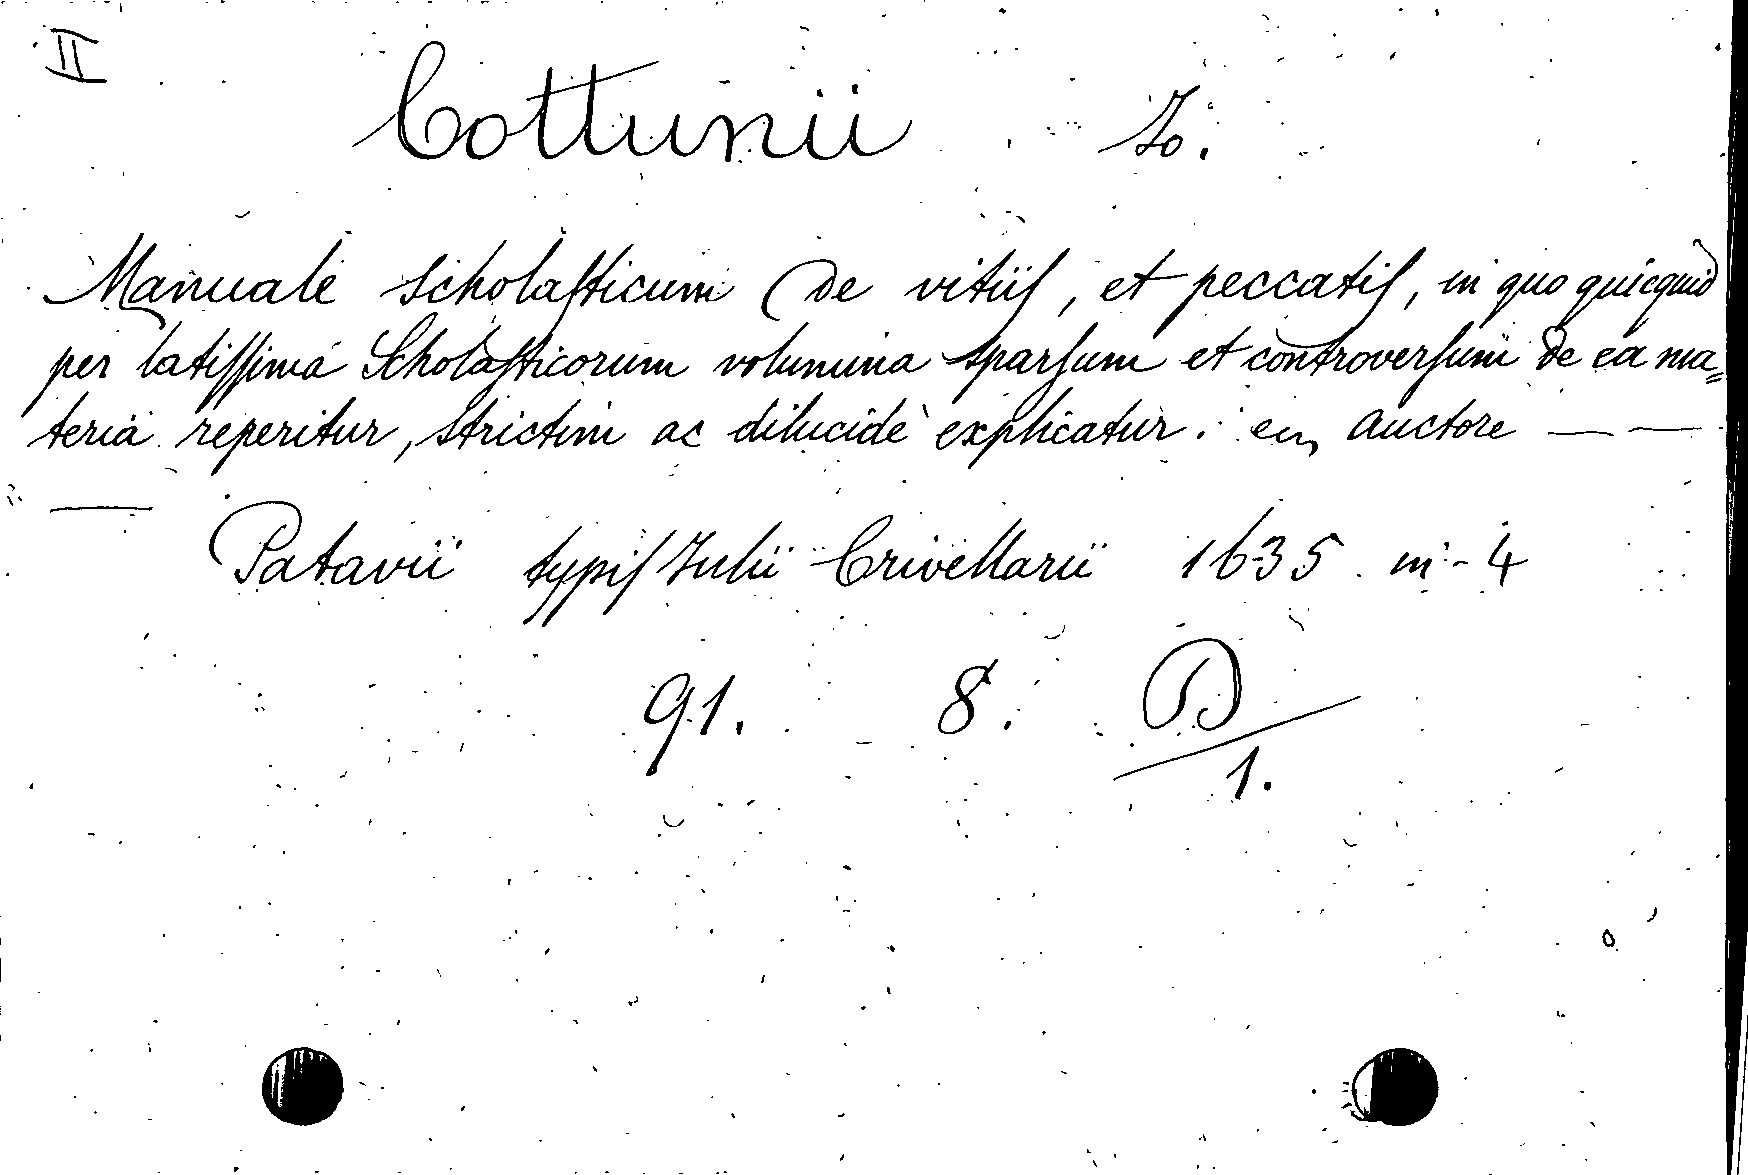 II
Cottunii Io.
Manuale scholaſticum de vitiiſ, et peccatiſ, in quo quicquid
per latiſſima Scholaſticorum volumina sparſum et controverſum de ea ma=
teria reperitur, strictim ac dilucidè explicatur. auctore — —
—
Patavii typiſ Iulii Crivellarii 1635 in-4
91. 8. D
1.